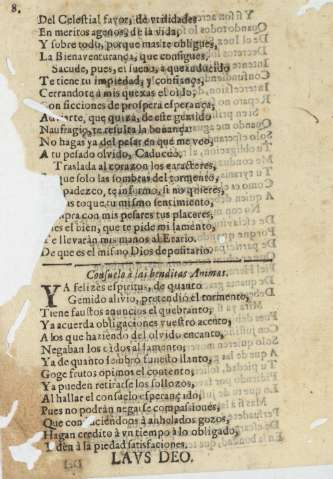 8.
Del Celestial fauor, de vtilidades
En meritos agenos, de la vida,
Y sobre todo, porque mas te obligues,
La Bienauenturança, que consigues,
Sacude, pues, el sueño, a que aduzido
Te tiene tu impiedad, y confianos,
Cerrandote à mis quexas el oido,
Con ficciones de prospera esperança,
Aduierte, que quiza, de este gemido
Naufragio, te resulta la bonança:
No hagas ya del pesar en que me veo,
A tu pesado olvido, Caduceo,
Traslada al coraçon los caracteres,
que solo las sombras del tormento,
padezco, te informo, si no quieres,
toque, tu mismo sentimiento,
pra con mis pesares tus placeres,
es el bien, que te pide mi lamento,
Te lleuarán mis manos al Erario.
De que es el mismo Dios depositario.
Consuelo à las benditas Animas.
YA felizes espiritus, de quanto
Gemido alivio, pretendiò el tormento,
Tiene faustos anuncios el quebranto;
Ya acuerda obligaciones vuestro acento,
A los que haziendo del olvido encanto,
Negaban los oidos al lamento;
Ya de quanto sombrò funesto llanto,
Goge frutos opimos el contento,
Ya pueden retirarse los sollozos,
Al hallar el consuelo esperançado,
Pues no podràn negarse compasiones,
Que conociendons à anholados gozos,
Hagan credito à vn tiempo à lo obligado,
den à la piedad satisfaciones.
LAVS DEO.